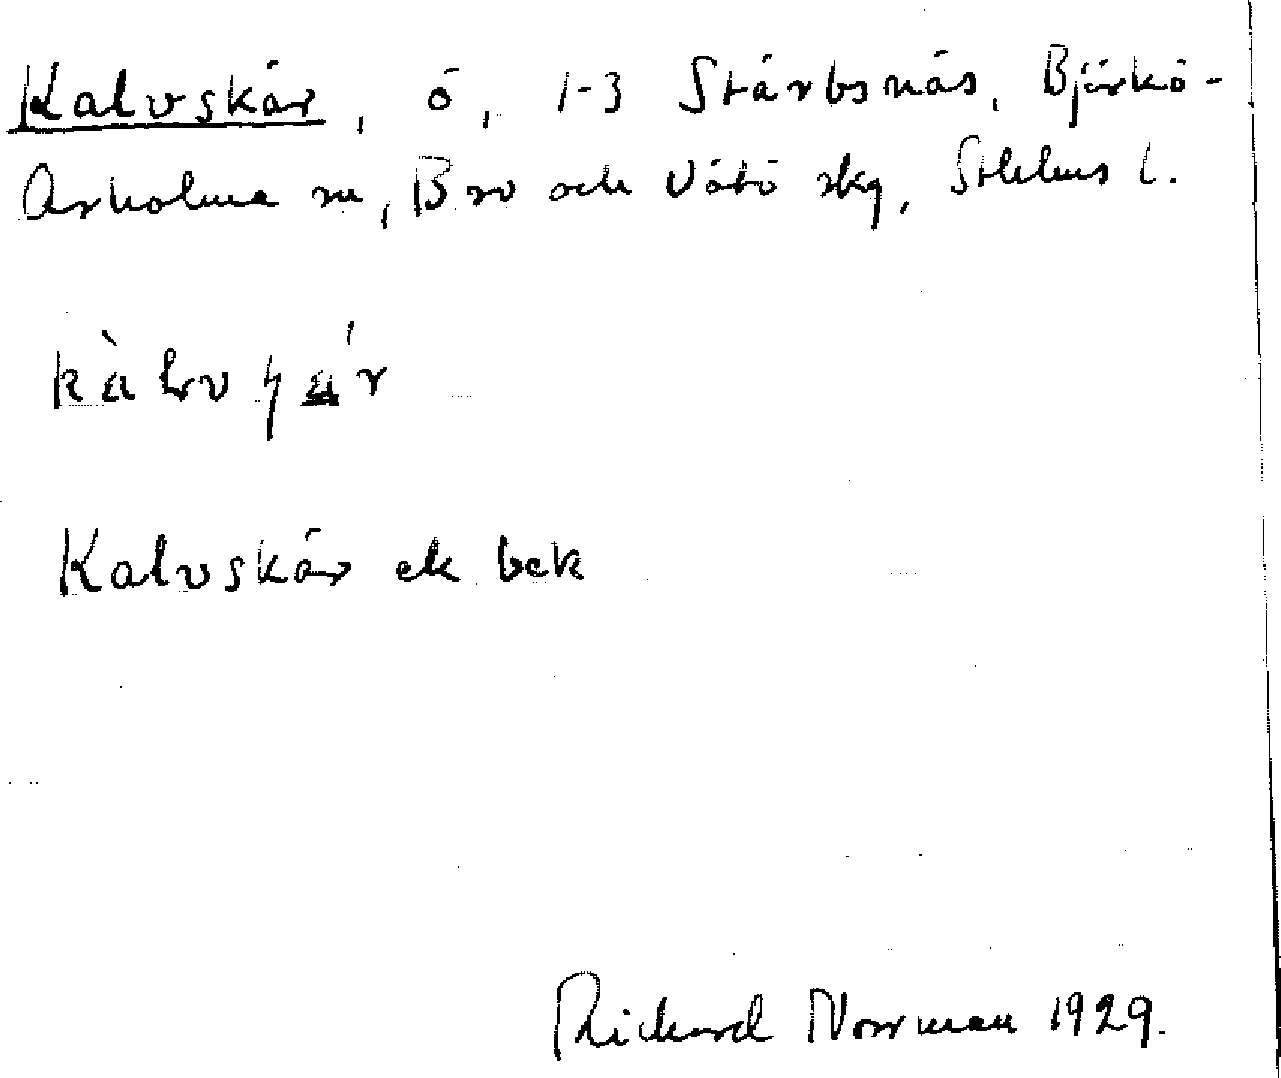 Kalvskär, ö, 1-3 Stärbsnäs, Björkö-
Arholma sn, Bro och Vätö skg, Sthlms l.
Kalvskär ek bek
Rickard Norrman 1929.